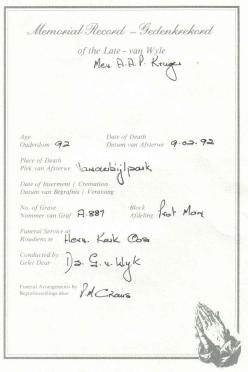 Memorial Record – Gedenkrekord
of the Late - van Wyle
Mev A.A.P. Kruger
Age
Ouderdom 92
Date of Death
Datum van Afsterwe 9-02-92
Place of Death
Plek van Afsterwe Vanderbijlpark
Date of Interment / Cremation
Datum van Begrafnis / Verassing
No. of Grave
Nommer van Graf A.887
Block
Afdeling Prot Mon
Funeral Service at
Roudiens te Herv. Kerk Oos
Conducted by
Gelei Deur Ds G. v. Wyk
Funeral Arrangements by
Begrafnisreëlings deur